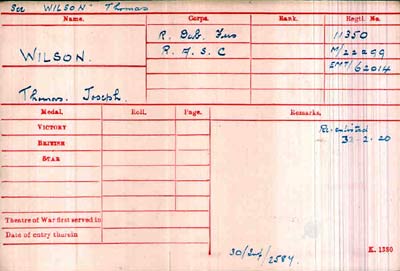 See WILSON Thomas
Name. Corps. Rank. Regtl. No.
WILSON. R. Dub. Fus 11350
R. A. S. C M/22299
EMT/62014
Thomas. Joseph.
Medal. Roll. Page. Remarks.
VICTORY Re-enlisted
BRITISH 2. 20
STAR
Theatre of War first served in
Date of entry therein
K. 1380
2587.